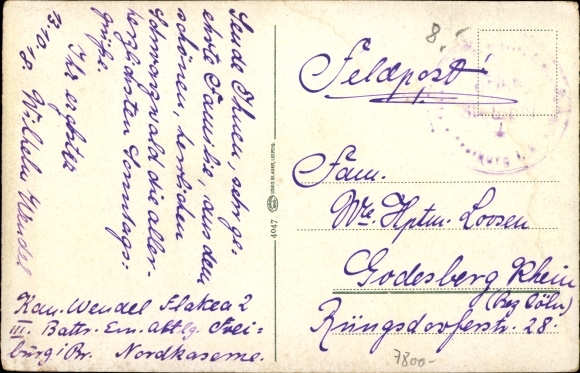 Sende Ihnen, sehr ge-
ehrte Familie, aus dem
schönen, herrlichen
Schwarzwald die aller-
herzlichsten Sonntags-
grüße.
Ihr ergebener
Wilhelm Wendel
Kan. Wendel Flakea 2
III. Battr. Ern. abtlg. Frei-
burg i/Br. Nordkaserne.
4047
8.
Feldpost!
Fam.
Wwe. Hptm. Loosen
Godesberg Rhein
(Bez Cöln)
Rüngsdorferstr. 28.
7800-